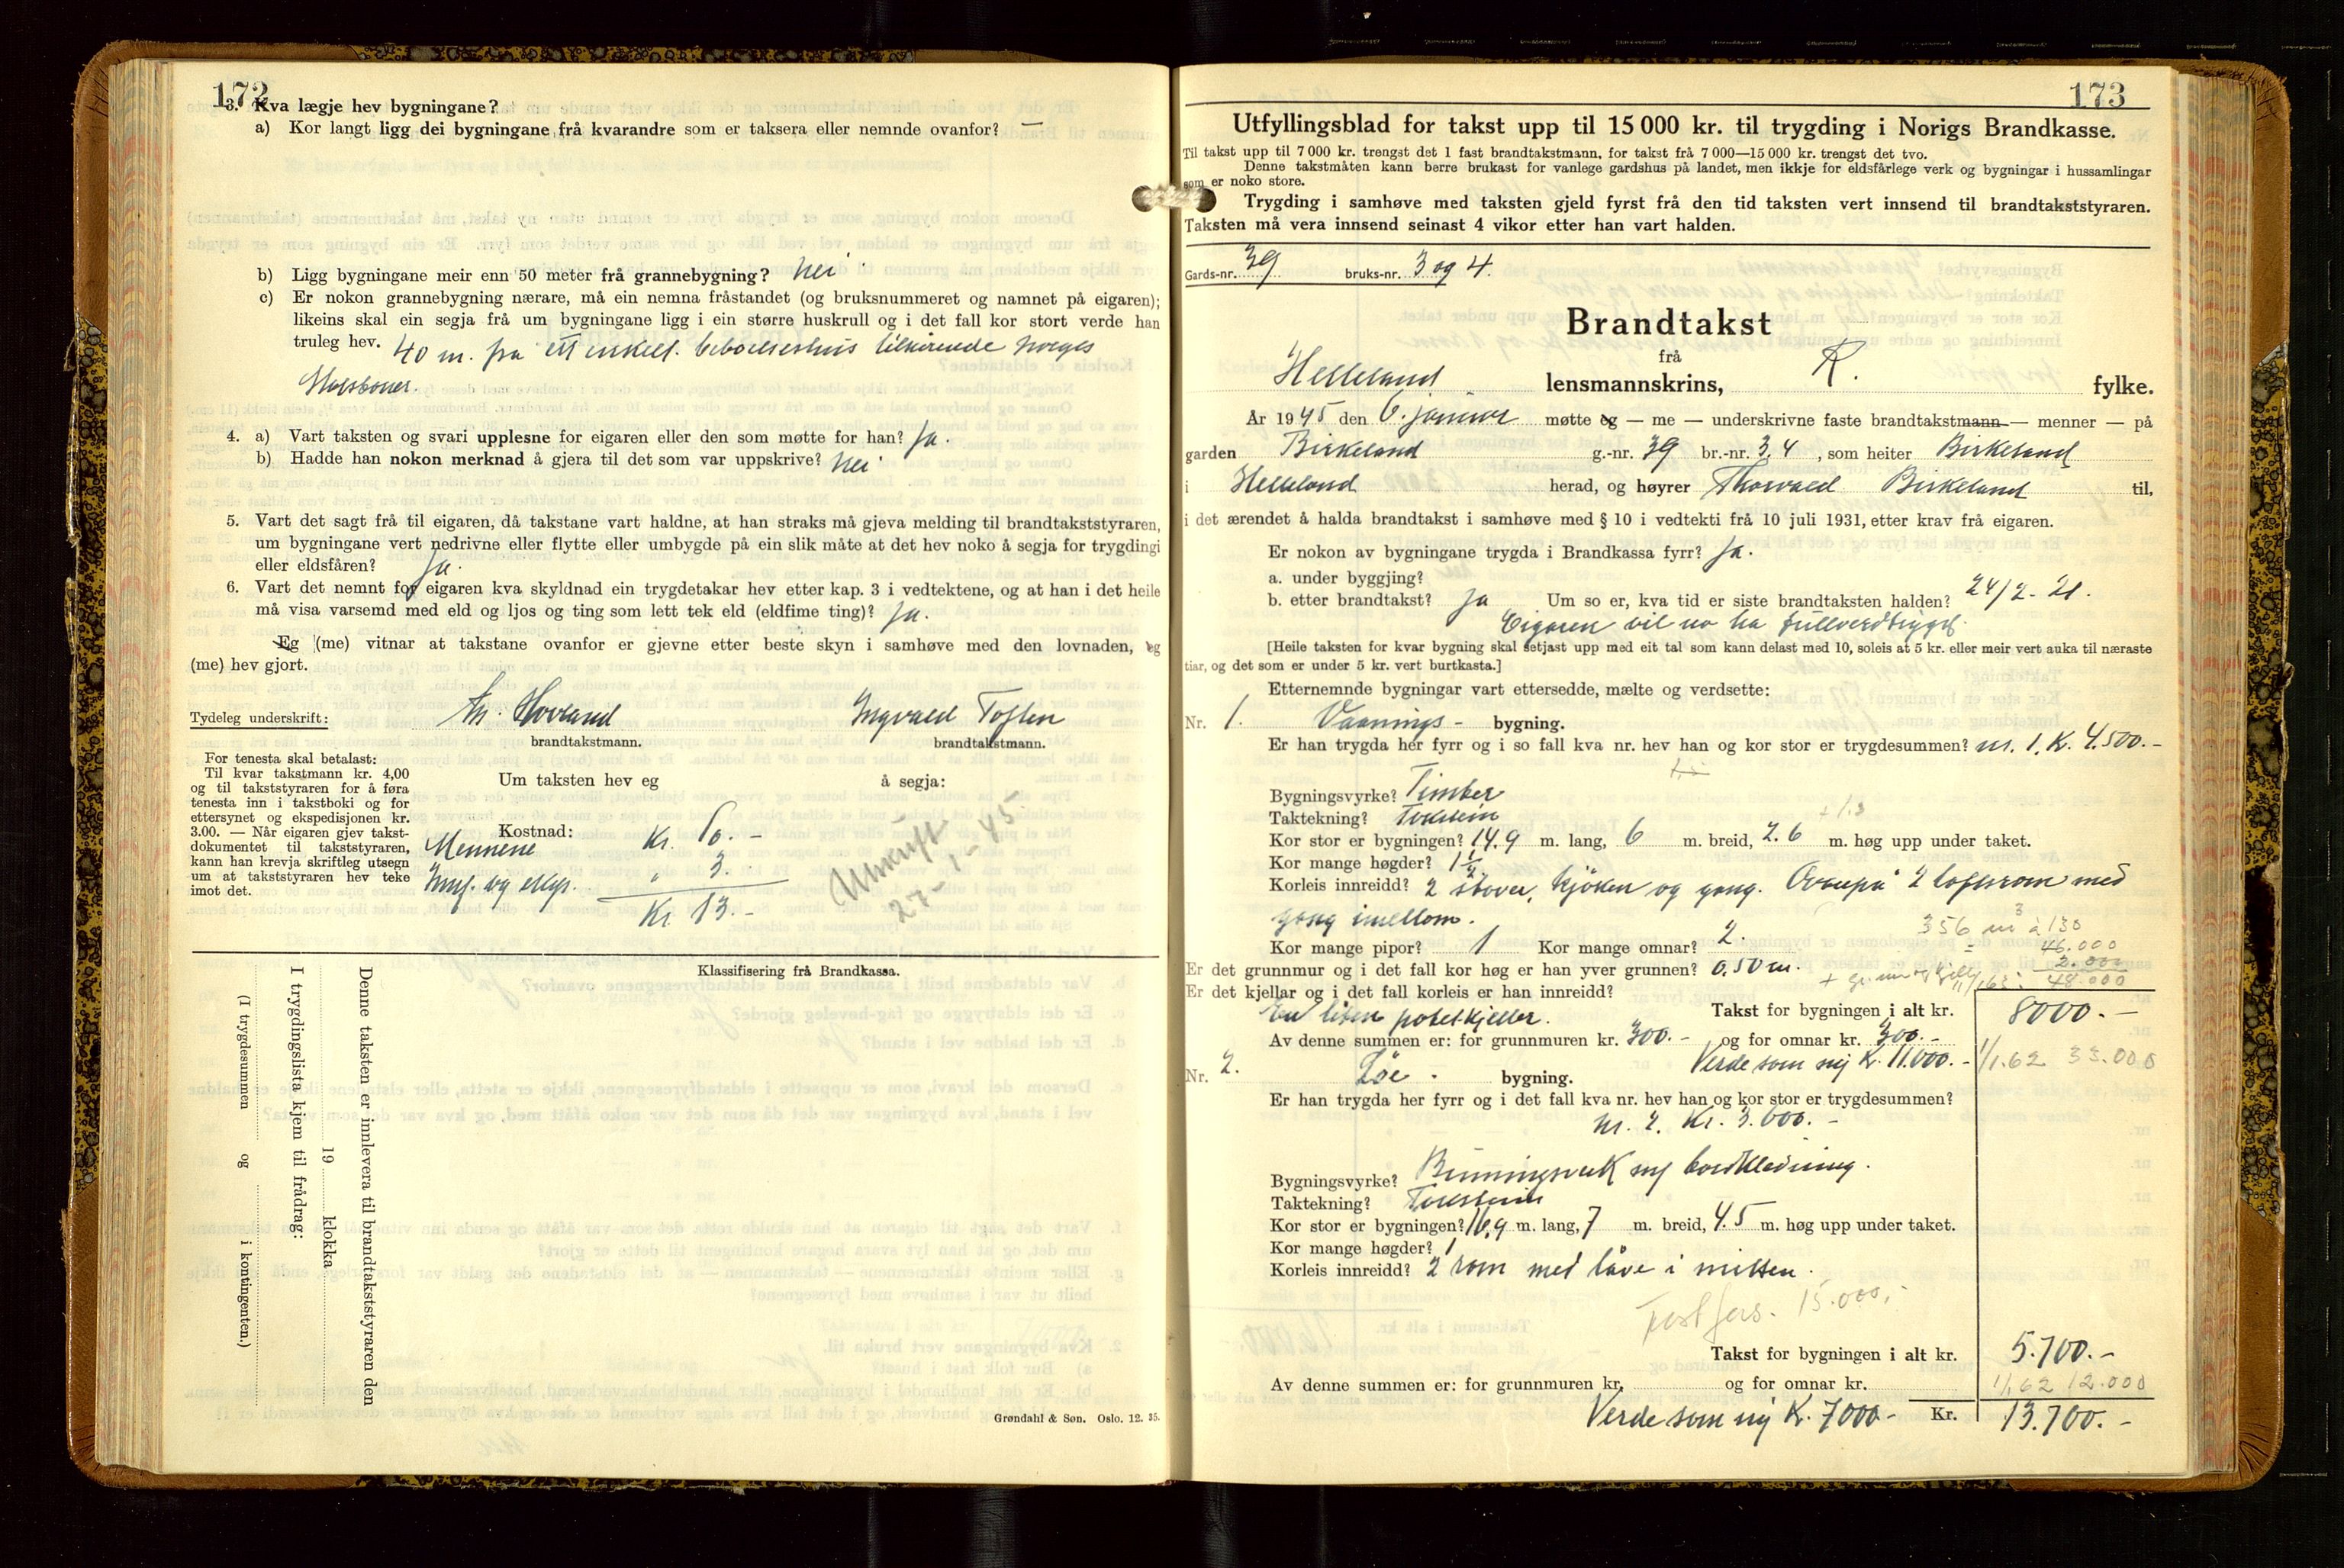 172
3. Kva lægje hev bygningane?
a) Kor langt ligg dei bygningane frå kvarandre som er taksera eller nemnde ovanfor? —
b) Ligg bygningane meir enn 50 meter frå grannebygning? Nei
c) Er nokon grannebygning nærare, må ein nemna fråstandet (og bruksnummeret og namnet på eigaren);
likeins skal ein segja frå um bygningane ligg i ein større huskrull og i det fall kor stort verde han
truleg hev. 40 m. fra ett enkelt beboelseshus tilhørende Norges
Statsbaner.
4. a) Vart taksten og svari upplesne for eigaren eller den som møtte for han? Ja.
b) Hadde han nokon merknad å gjera til det som var uppskrive? Nei
5. Vart det sagt frå til eigaren, då takstane vart haldne, at han straks må gjeva melding til brandtakststyraren,
um bygningane vert nedrivne eller flytte eller umbygde på ein slik måte at det hev noko å segja for trygdingi
eller eldsfåren? Ja.
6. Vart det nemnt for eigaren kva skyldnad ein trygdetakar hev etter kap. 3 i vedtektene, og at han i det heile
må visa varsemd med eld og ljos og ting som lett tek eld (eldfime ting)? Ja.
Eg (me) vitnar at takstane ovanfor er gjevne etter beste skyn i samhøve med den lovnaden, eg
(me) hev gjort.
Tydeleg underskrift: Hovland Ingvald Toften
brandtakstmann. brandtakstmann.
For tenesta skal betalast:
Til kvar takstmann kr. 4,00
og til takststyraren for å føra
tenesta inn i takstboki og for
ettersynet og ekspedisjonen kr.
3.00. — Når eigaren gjev takst-
dokumentet til takststyraren,
kann han krevja skriftleg utsegn
um at takststyraren hev teke
imot det.
Um taksten hev eg å segja:
Kostnad:
Mennene Kr. 10. -
Innf. og eksp. " 3.
Kr. 13. -
Utskrift
27-1-45
Klassifisering frå Brandkassa.
Denne taksten er innlevera til brandtakststyraren den
19 klokka
I trygdingslista kjem til frådrag:
(I trygdesummen og i kontingenten.)
Grøndahl & Søn. Oslo. 12. 35.
173
Utfyllingsblad for takst upp til 15 000 kr. til trygding i Norigs Brandkasse.
Til takst upp til 7 000 kr. trengst det 1 fast brandtakstmann, for takst frå 7 000—15 000 kr. trengst det tvo.
Denne takstmåten kann berre brukast for vanlege gardshus på landet, men ikkje for eldsfårlege verk og bygningar i hussamlingar
som er noko store.
Trygding i samhøve med taksten gjeld fyrst frå den tid taksten vert innsend til brandtakststyraren.
Taksten må vera innsend seinast 4 vikor etter han vart halden.
Gards-nr. 39 bruks-nr. 3 og 4.
Brandtakst
frå
Helleland lensmannskrins, R. fylke.
År 1945 den 6. januar møtte eg — me — underskrivne faste brandtakstmann — menner — på
garden Birkeland g.-nr. 39 br.-nr. 3, 4, som heiter Birkeland
i Helleland herad, og høyrer Thorvald Birkeland til,
i det ærendet å halda brandtakst i samhøve med § 10 i vedtekti frå 10 juli 1931, etter krav frå eigaren.
Er nokon av bygningane trygda i Brandkassa fyrr? Ja.
a. under byggjing?
b. etter brandtakst? Ja Um so er, kva tid er siste brandtaksten halden? 24/2-21.
Eigaren vil no ha fullverdtrygd.
[Heile taksten for kvar bygning skal setjast upp med eit tal som kann delast med 10, soleis at 5 kr. eller meir vert auka til næraste
tiar, og det som er under 5 kr. vert burtkasta.]
Etternemnde bygningar vart ettersedde, mælte og verdsette:
Nr. 1. Vaanings- bygning.
Er han trygda her fyrr og i so fall kva nr. hev han og kor stor er trygdesummen? nr. 1. K. 4.500.-
Bygningsvyrke? Timber
Taktekning? Takstein
+ 1.3
Kor stor er bygningen? 14,9 m. lang, 6 m. breid, 2.6 m. høg upp under taket.
Kor mange høgder? 1 ½
Korleis innreidd? 2 stover, kjøken og gang. Ovenpå 2 loftsrom med
gang imellom.
356 m³ à 130
Kor mange pipor? 1 Kor mange omnar? 2.
= 46.000
Er det grunnmur og i det fall kor høg er han yver grunnen? 0,50 m.
2.000
+ gr.mur og kjell
1/1 63: 48.000
Er det kjellar og i det fall korleis er han innreidd?
En liten potetkjeller. Takst for bygningen i alt kr. 8000. -
Av denne summen er: for grunnmuren kr. 300.- og for omnar kr. 300.-
Verde som ny K. 11.000. - 1/1.62 33.000
Nr. 2. Løe. bygning.
Er han trygda her fyrr og i det fall kva nr. hev han og kor stor er trygdesummen?
nr. 2. Kr. 3.000. -
Bygningsvyrke? Binningsverk m/ bordkledning.
Taktekning? Takstein
Kor stor er bygningen? 16,9 m. lang, 7 m. breid, 4.5 m. høg upp under taket.
Kor mange høgder? 1
Korleis innreidd? 2 rom med låve i mitten.
15.000,-
Takst for bygningen i alt kr. 5.700.-
Av denne summen er: for grunnmuren kr. og for omnar kr.
1/1.62 12.000
Verde som ny K. 7000- Kr. 13.700. -